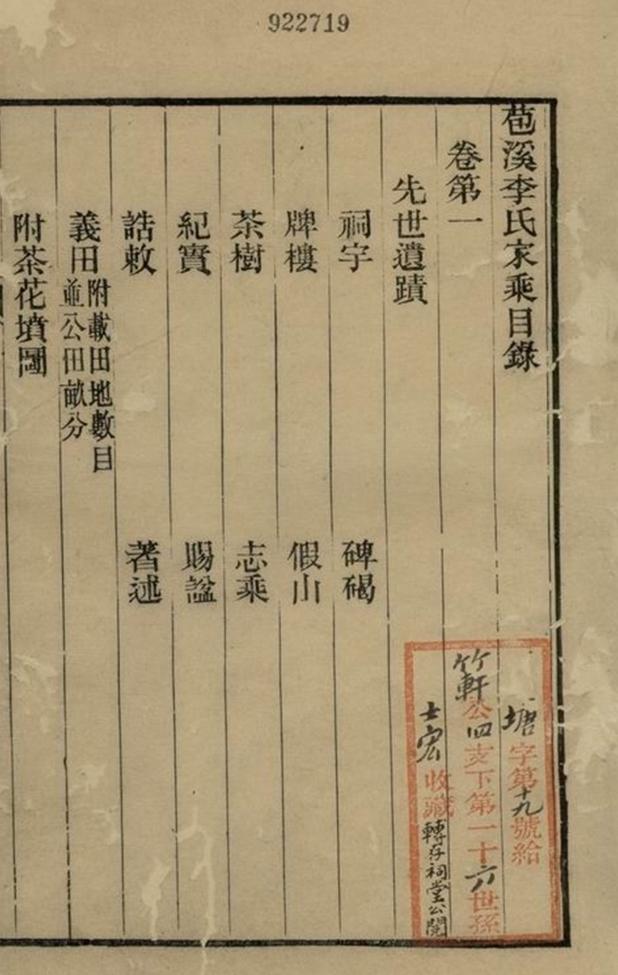 922719
苞溪李氏家乘目錄
卷第一
先世遺蹟
祠宇 碑碣
牌樓 假山
茶樹 志乘
紀實 賜諡
誥敕 著述
義田 附載田地數目
並公田畝分
附茶花墳圖
塘字第十九號給
竹軒公四支下第一十六世孫
士宏收藏轉存祠堂公閱